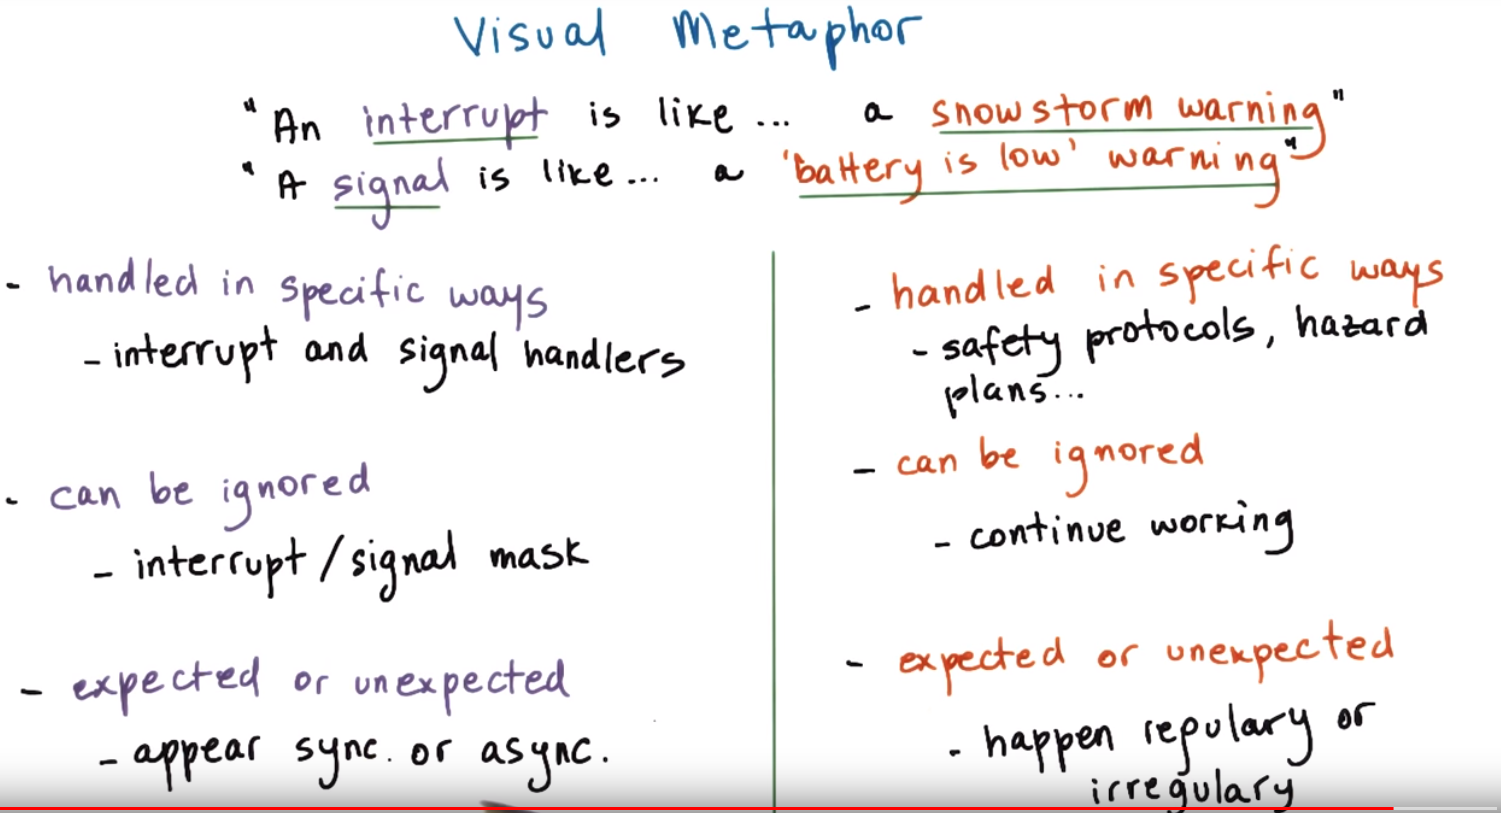 Visual Metaphor
"An interrupt is like ... a snowstorm warning"
"A signal is like ... a 'battery is low' warning"
- handled in specific ways
- interrupt and signal handlers
- can be ignored
- interrupt / signal mask
- expected or unexpected
- appear sync. or async.
- handled in specific ways
- safety protocols, hazard
plans...
- can be ignored
- continue working
- expected or unexpected
- happen regulary or
irregulary